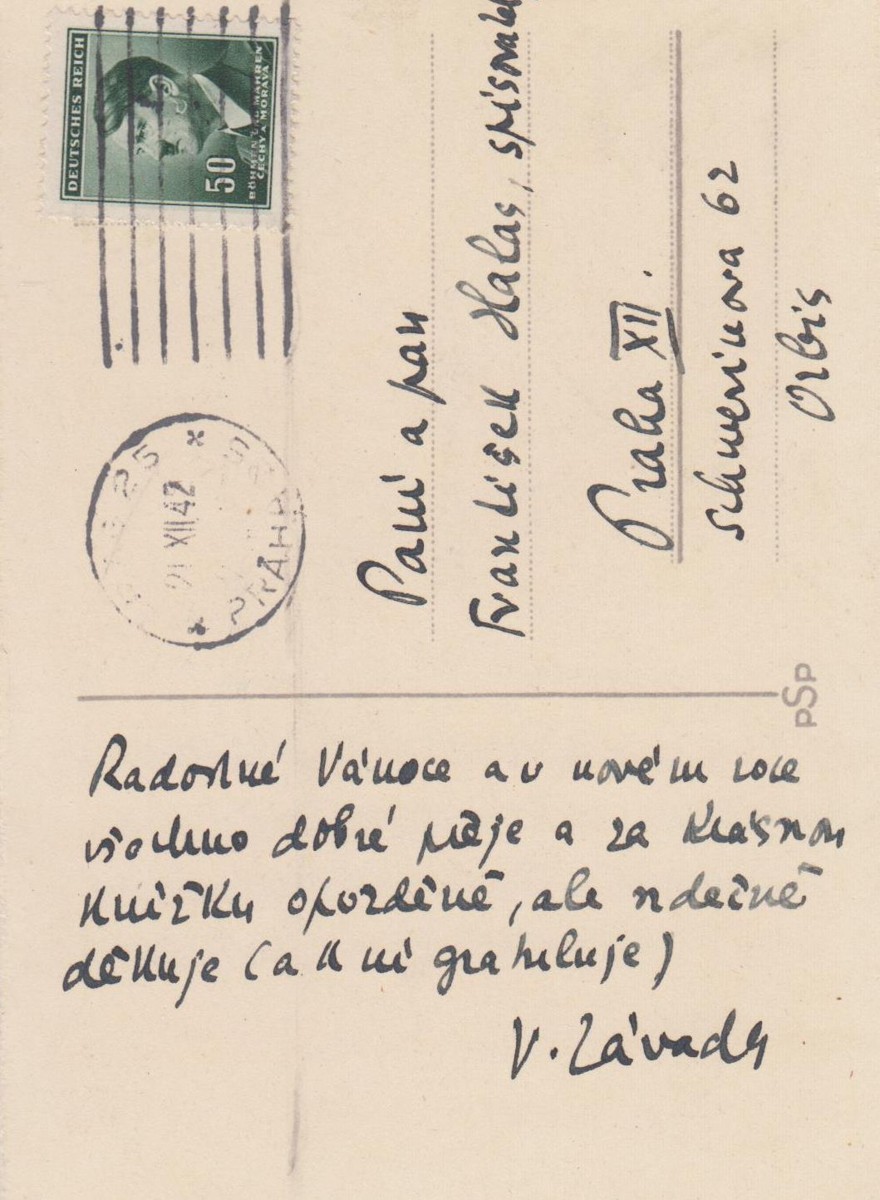 DEUTSCHES REICH
50
BÖHMEN UND MÄHREN
ČECHY A MORAVA
25
21 XII 42
PRAHA
Paní a pan
František Halas, spisovatel
Praha XII.
Schwerinova 62
Orbis
PSP
Radostné Vánoce a v novém roce
všechno dobré přeje a za krásnou
knížku opožděně, ale srdečně
děkuje (a k ní gratuluje)
V. Závada